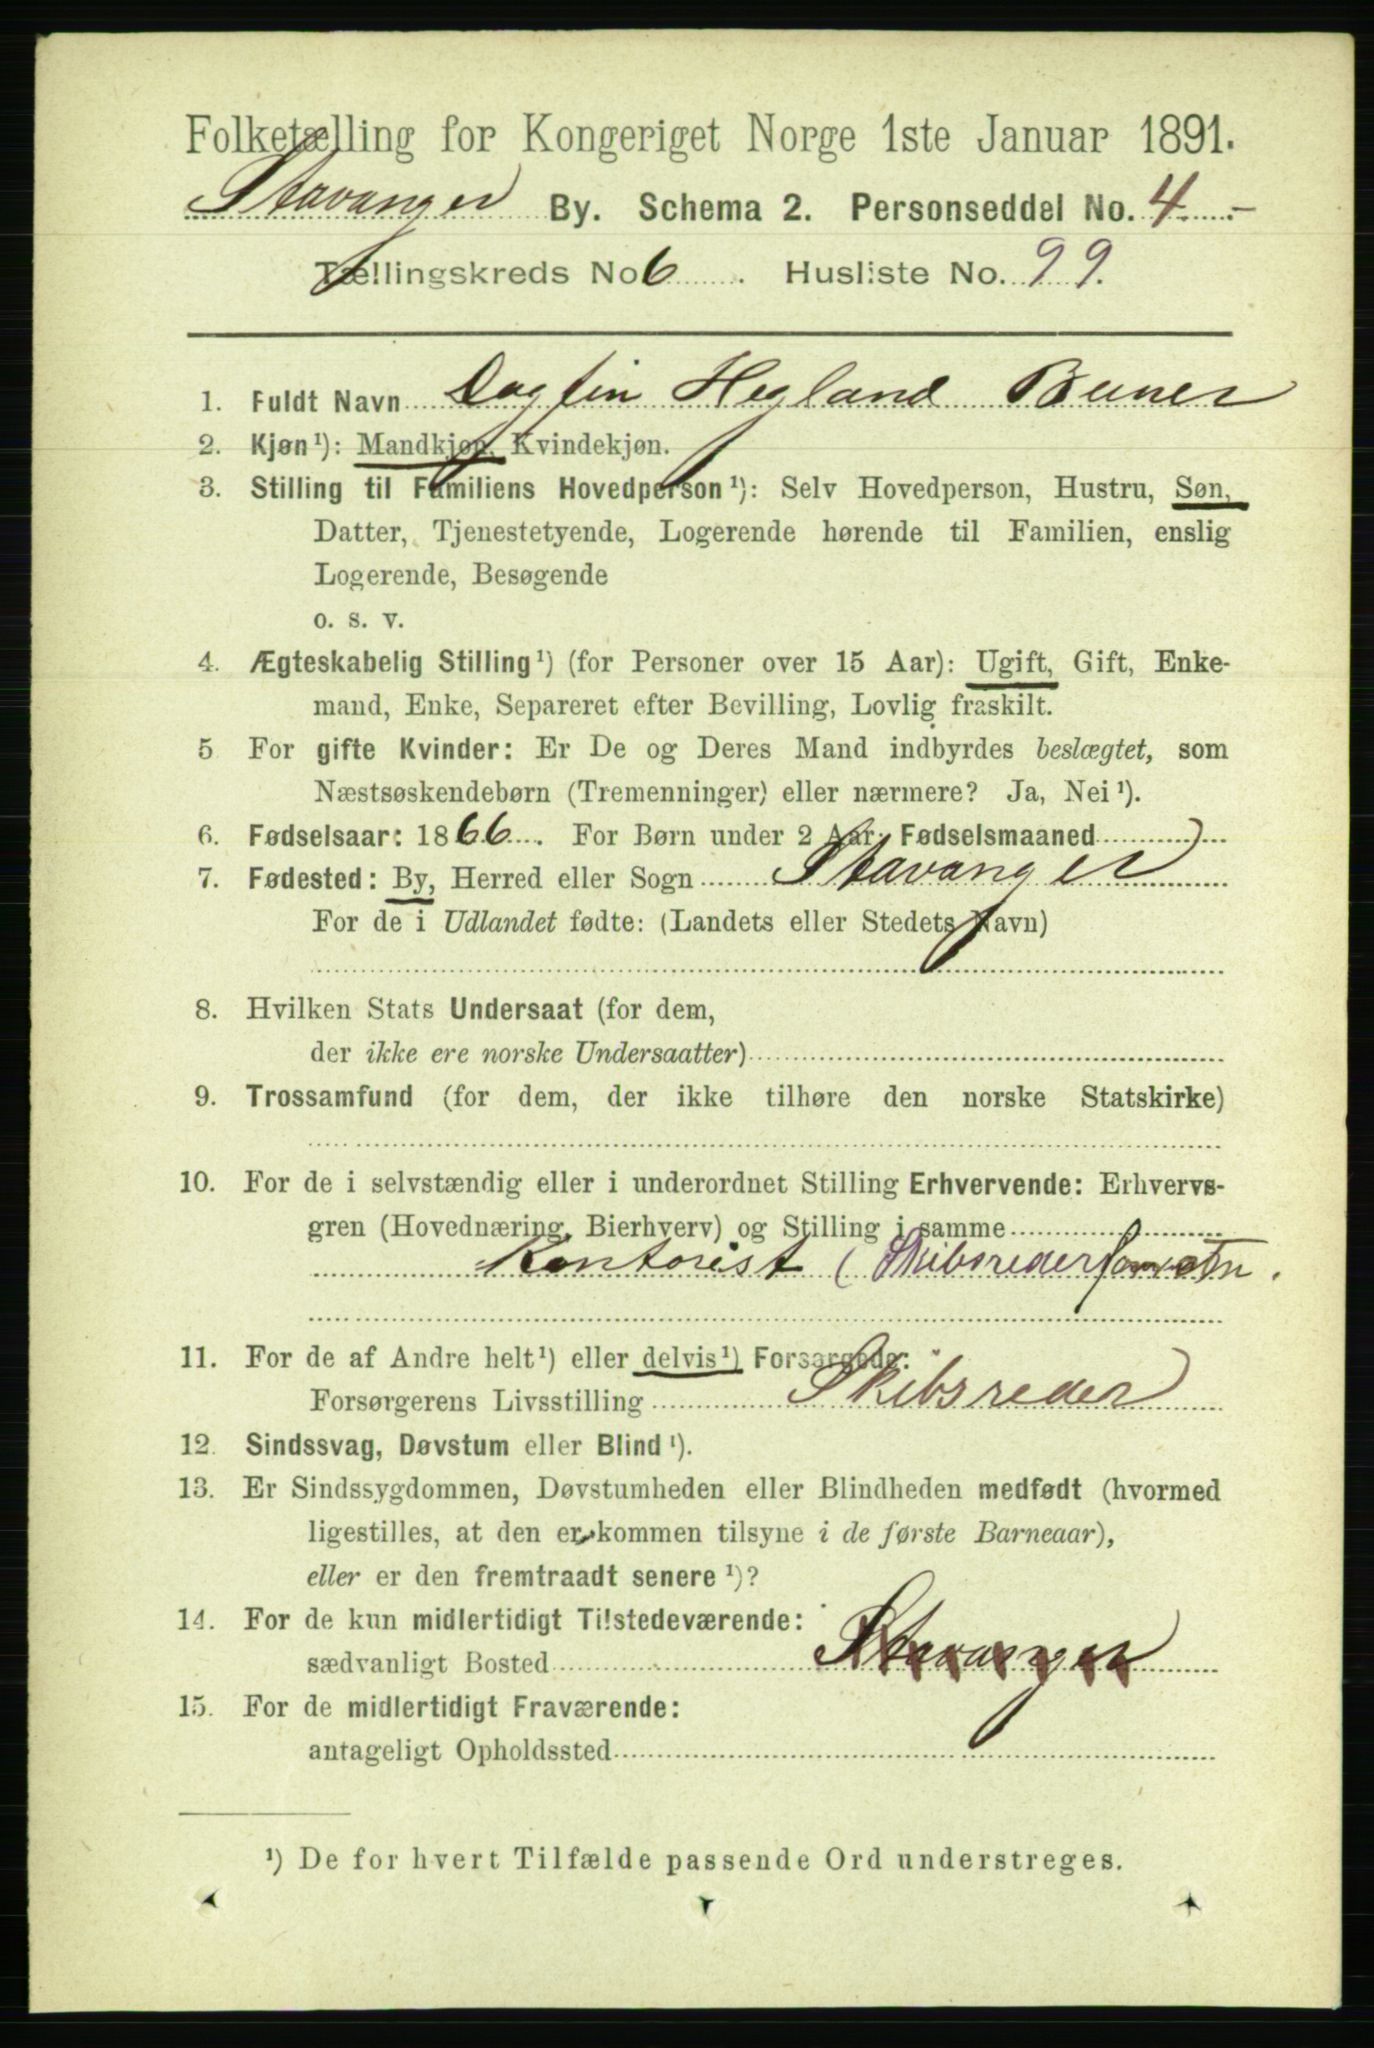 Folketælling for Kongeriget Norge 1ste Januar 1891.
Stavanger By. Schema 2. Personseddel No. 4 -
Tællingskreds No 6. Husliste No. 99.
1. Fuldt Navn Dagfin Hegland
2. Kjøn¹): Mandkjøn, Kvindekjøn.
3. Stilling til Familiens Hovedperson¹): Selv Hovedperson, Hustru, Søn,
Datter, Tjenestetyende, Logerende hørende til Familien, enslig
Logerende, Besøgende
o. s. v.
4. Ægteskabelig Stilling¹) (for Personer over 15 Aar): Ugift, Gift, Enke-
mand, Enke, Separeret efter Bevilling, Lovlig fraskilt.
5 For gifte Kvinder: Er De og Deres Mand indbyrdes beslægtet, som
Næstsøskendebørn (Tremenninger) eller nærmere? Ja, Nei¹).
6. Fødselsaar: 1866. For Børn under 2 Aar: Fødselsmaaned
7. Fødested: By, Herred eller Sogn Stavanger
For de i Udlandet fødte: (Landets eller Stedets Navn)
8. Hvilken Stats Undersaat (for dem,
der ikke ere norske Undersaatter)
9. Trossamfund (for dem, der ikke tilhøre den norske Statskirke)
10. For de i selvstændig eller i underordnet Stilling Erhvervende: Erhvervs-
gren (Hovednæring, Bierhverv) og Stilling i samme
Kontorist (Skibsrederforretn.
11. For de af Andre helt¹) eller delvis¹) Forsørgede:
Forsørgerens Livsstilling Skibsreder
12. Sindssvag, Døvstum eller Blind¹).
13. Er Sindssygdommen, Døvstumheden eller Blindheden medfødt (hvormed
ligestilles, at den er kommen tilsyne i de første Barneaar),
eller er den fremtraadt senere¹)?
14. For de kun midlertidigt Tilstedeværende:
sædvanligt Bosted Stavanger
15. For de midlertidigt Fraværende:
antageligt Opholdssted
¹) De for hvert Tilfælde passende Ord understreges.